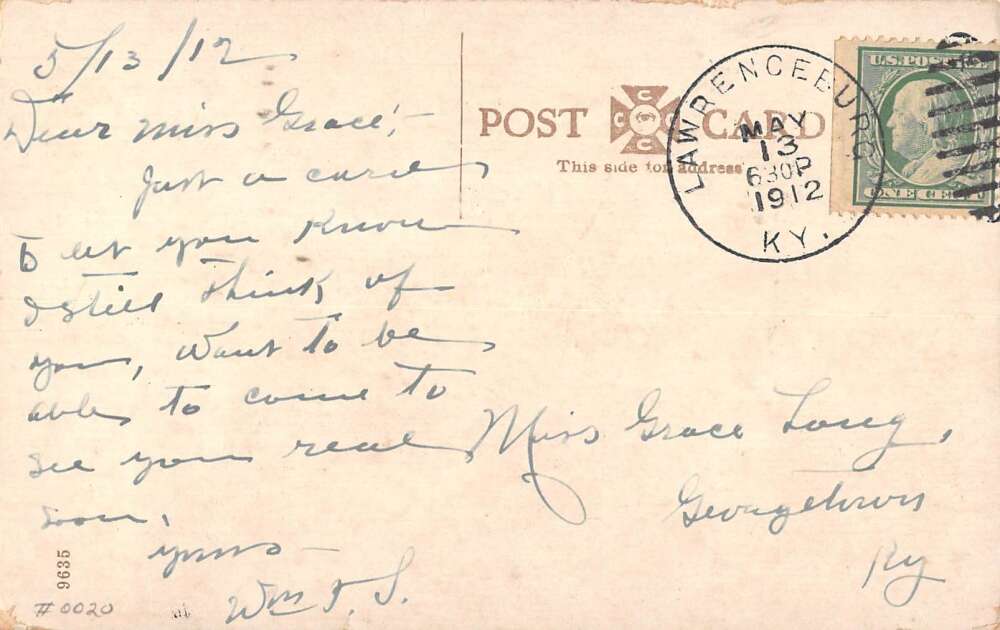 5/13/12
Dear Miss Grace,-
Just a card
to let you know
I still think of
you, want to be
able to come to
see you real
soon,
yours-
Wm T. S.
9635
#0020
POST CARD
This side for address
LAWRENCEBURG
MAY
13
630P
1912
KY.
U.S. POSTAGE
ONE CENT
Miss Grace Long,
Georgetown
Ky